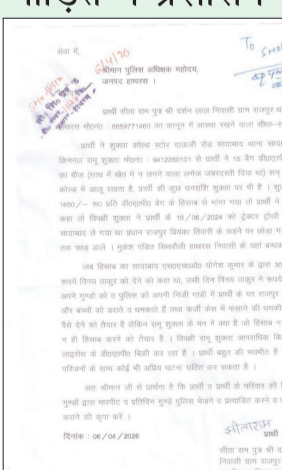 पीड़ित ने प्रशासन
सेवा में,
6/4/26
To
श्रीमान पुलिस अधिक्षक महोदय,
जनपद हाथरस ।
प्रार्थी सीता राम पुत्र श्री दर्शन लाल निवासी ग्राम राजपुर
हाथरस मो०नं० : 8859771465 का कानून में आस्था रखने वाला सीधा-
प्रार्थी ने शुक्ला कोल्ड स्टोर दाऊजी रोड सादाबाद थाना
क्रिमनल रामू शुक्ला मो०नं० : 9412280101 से प्रार्थी ने 15 बैग
का बीज (साथ में खेत में न लगने वाला लगेज जबरदस्ती दिया था) सन्
कोल्ड में आलू रखता है, प्रार्थी की कुछ धनराशि शुक्ला पर भी है ।
1650/– रू० प्रति डी०ए०पी० बैग के हिसाब से मांगा गया तो प्रार्थी ने
कहा तो विपक्षी शुक्ला ने प्रार्थी के 16/06/2024 को ट्रेक्टर ट्रोली
सादाबाद ले गया था प्रधान राजपुर प्रियंका तिवारी के कहने पर छोड़ा
तक फाड़ डाले । मुकेश पंडित सिथरौली हाथरस निवासी के यहां
जब हिसाब का सादाबाद एस०एच०ओ० योगेश कुमार के द्वारा
रूपये विनय ठाकुर को देने को कहा था, उसी दिन विनय ठाकुर ने रूपये
अपने गुण्डों को व पुलिस को अपनी निजी गाडी में प्रार्थी के घर राजपुर
और बच्चों को डराते व धमकाते हैं तथा फर्जी केस में फसाने की धमकी
पैसे देने को तैयार है लेकिन रामू शुक्ला के मन में क्या है जो हिसाब न
न ही हिसाब करने को तैयार है । विपक्षी रामू शुक्ला आपराधिक
लाइसेंस के डी०ए०पी० बिक्री कर रहा है । प्रार्थी बहुत की भयभीत है
परिजनों के साथ कोई भी अप्रिय घटना घटित कर सकता है ।
अतः श्रीमान जी से प्रार्थना है कि प्रार्थी व प्रार्थी के परिवार को
गुण्डों द्वारा मारपीट व प्रतिदिन गुण्डे पुलिस भेजने व प्रताडित करने व
कराने की कृपा करें ।
सीताराम
दिनांक : 06/04/2026
प्रार्थी
सीता राम पुत्र श्री
निवासी ग्राम राजपुर